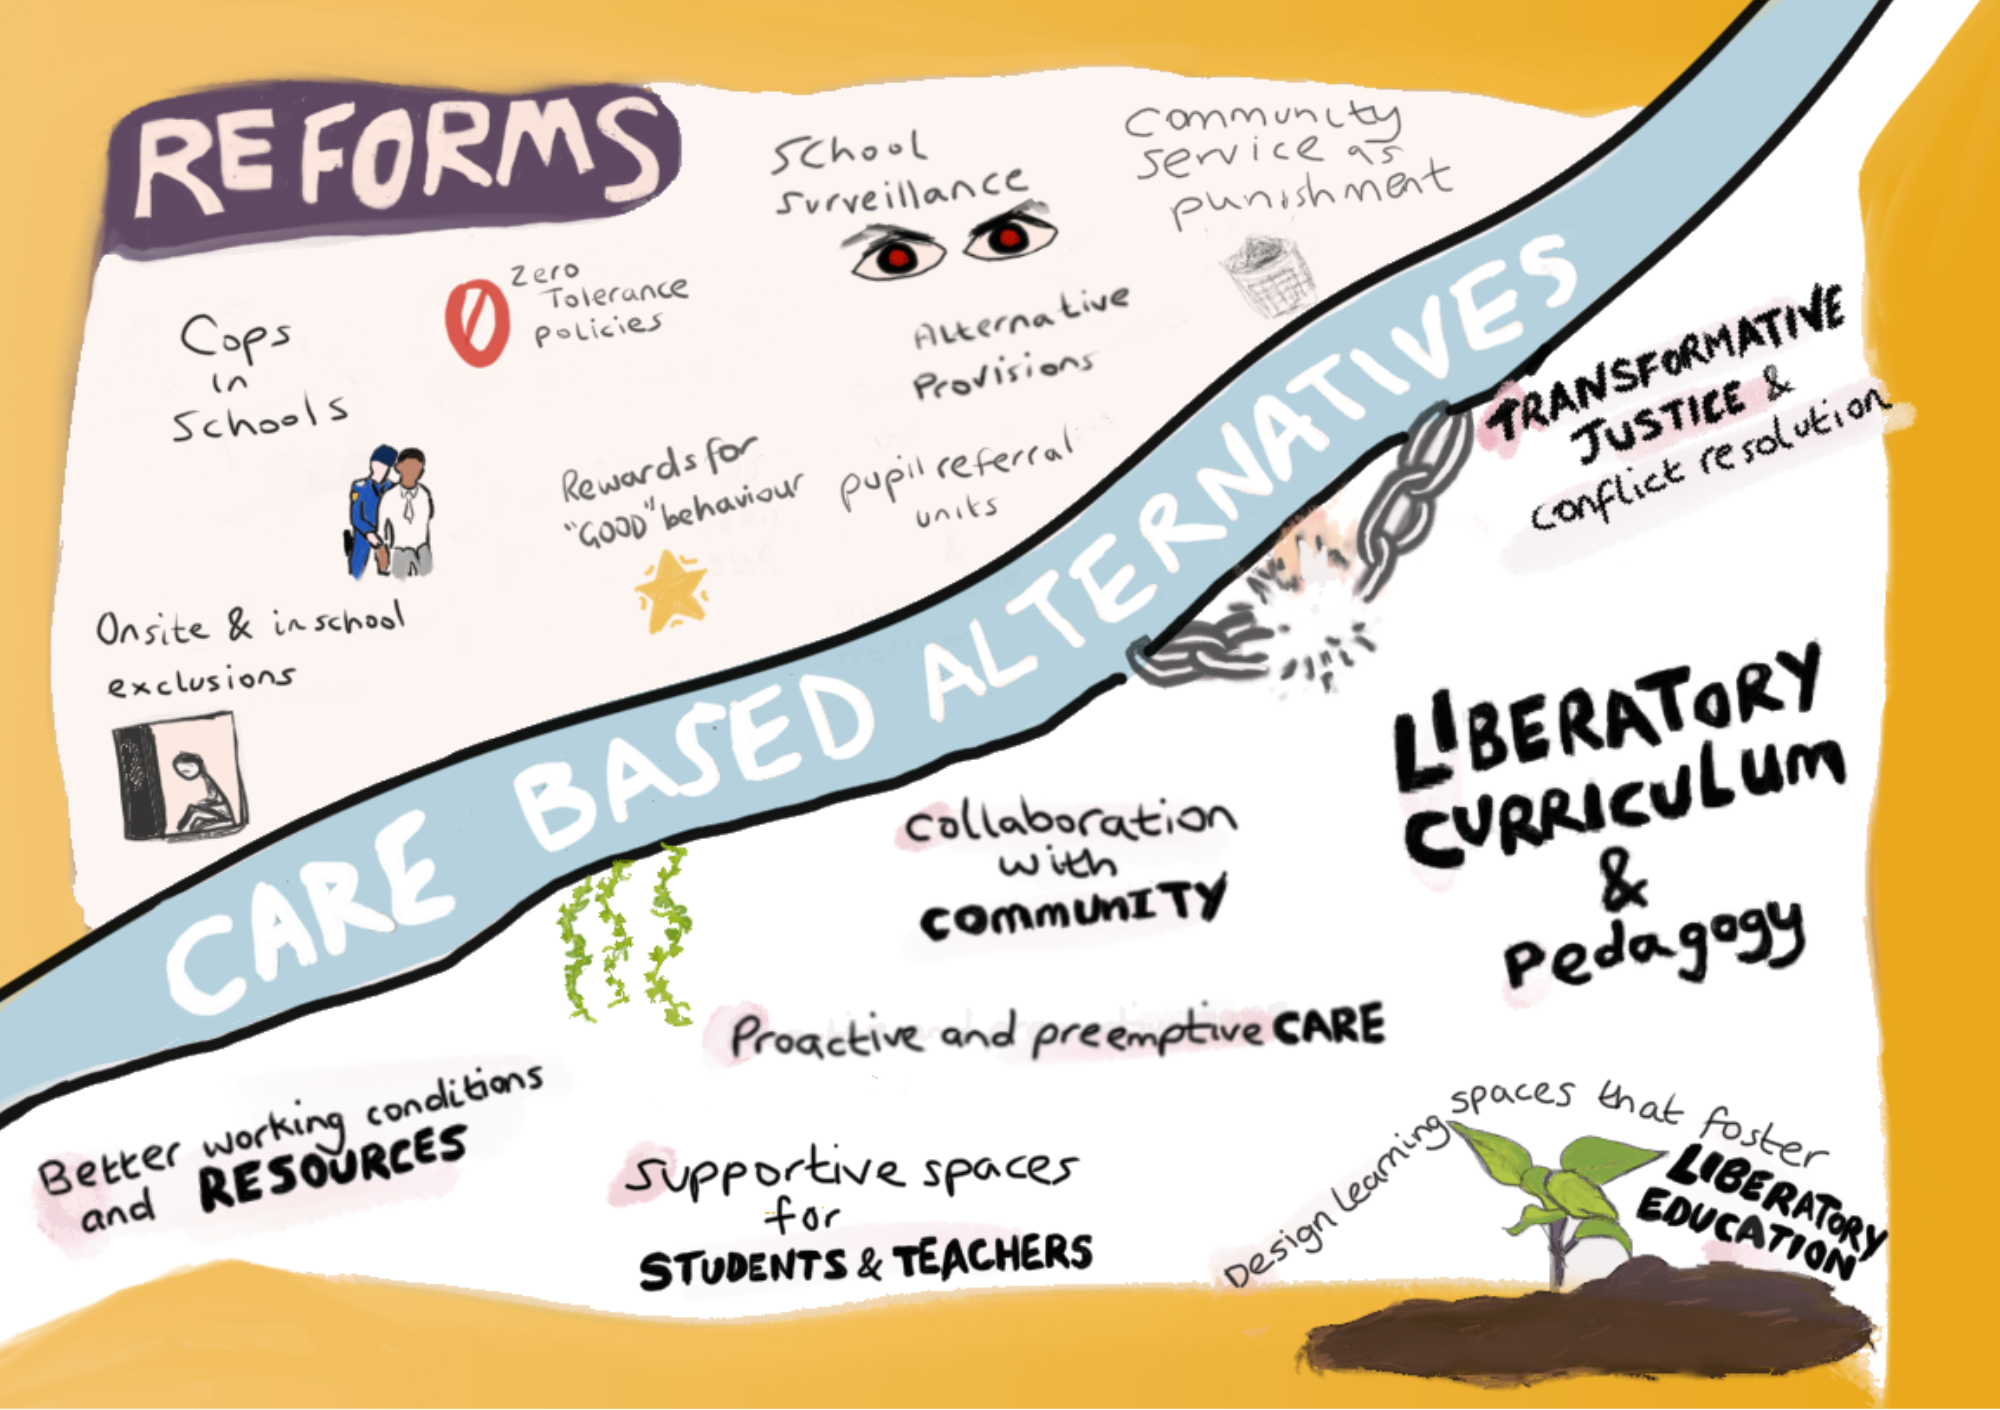 REFORMS
School
surveillance
Community
service as
punishment
Zero
Tolerance
policies
Cops
in
Schools
Alternative
Provisions
Rewards for
"GOOD" behaviour
pupil referral
units
Onsite & in school
exclusions
CARE BASED ALTERNATIVES
TRANSFORMATIVE
JUSTICE &
conflict resolution
LIBERATORY
CURRICULUM
&
Pedagogy
Collaboration
with
COMMUNITY
Proactive and preemptive CARE
Better working conditions
and RESOURCES
Supportive spaces
for
STUDENTS & TEACHERS
Design learning spaces that foster
LIBERATORY
EDUCATION